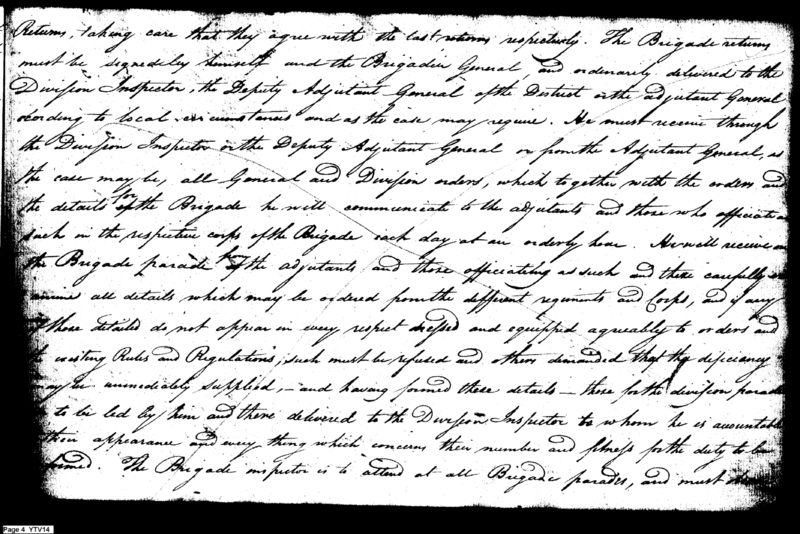 Returns, taking care that they agree with the last returns respectively. The Brigade returns
must be signed by himself and the Brigadier General, and ordenarily delivered to the
Divission Inspector, the Deputy Adjutant General of the District or the adjutant General
cording to local circumstances and as the case may require. He must receive through
the Divission Inspector or the Deputy Adjutant General or from the Adjutant General, as
the case may be, all General and Division orders, which together with the orders and
the details for the Brigade he will communicate to the adjutants and those who officiate as
such in the respective corps of the Brigade each day at an orderly hour. He will receive on
the Brigade parade the adjutants and those officiating as such and there carefully
amine all details which may be ordered from the different regiments and Corps, and if any
of those details do not appear in every respect dressed and equipped agreeably to orders and
the existing Rules and Regulations, such must be refused and others demanded that the deficiency
may be immediately supplied, – and having formed these details – those for the division parade
to be led by him and there delivered to the Division Inspector to whom he is accountable
their appearance and every thing which concerns their number and fitness for the duty to be
formed. The Brigade inspector is to attend at all Brigade parades, and must
Page 4 YTV14